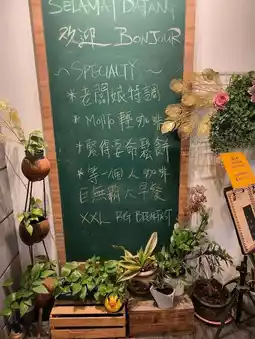 SELAMAT DATANG
欢迎 BONJOUR
~SPECIALTY~
*老闆娘特調
*Mojito 咖啡
*驚得要命鬆餅
*等一個人咖啡
巨無霸大早餐
XXL BIG BREAKFAST